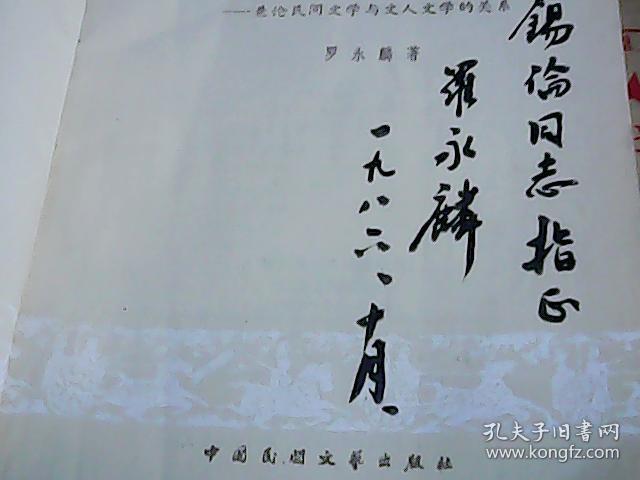 ——兼论民间文学与文人文学的关系
罗永麟著
錫倫同志指正
羅永麟
一九八六、十月、
中国民间文艺出版社
孔夫子旧书网
www.kongfz.com